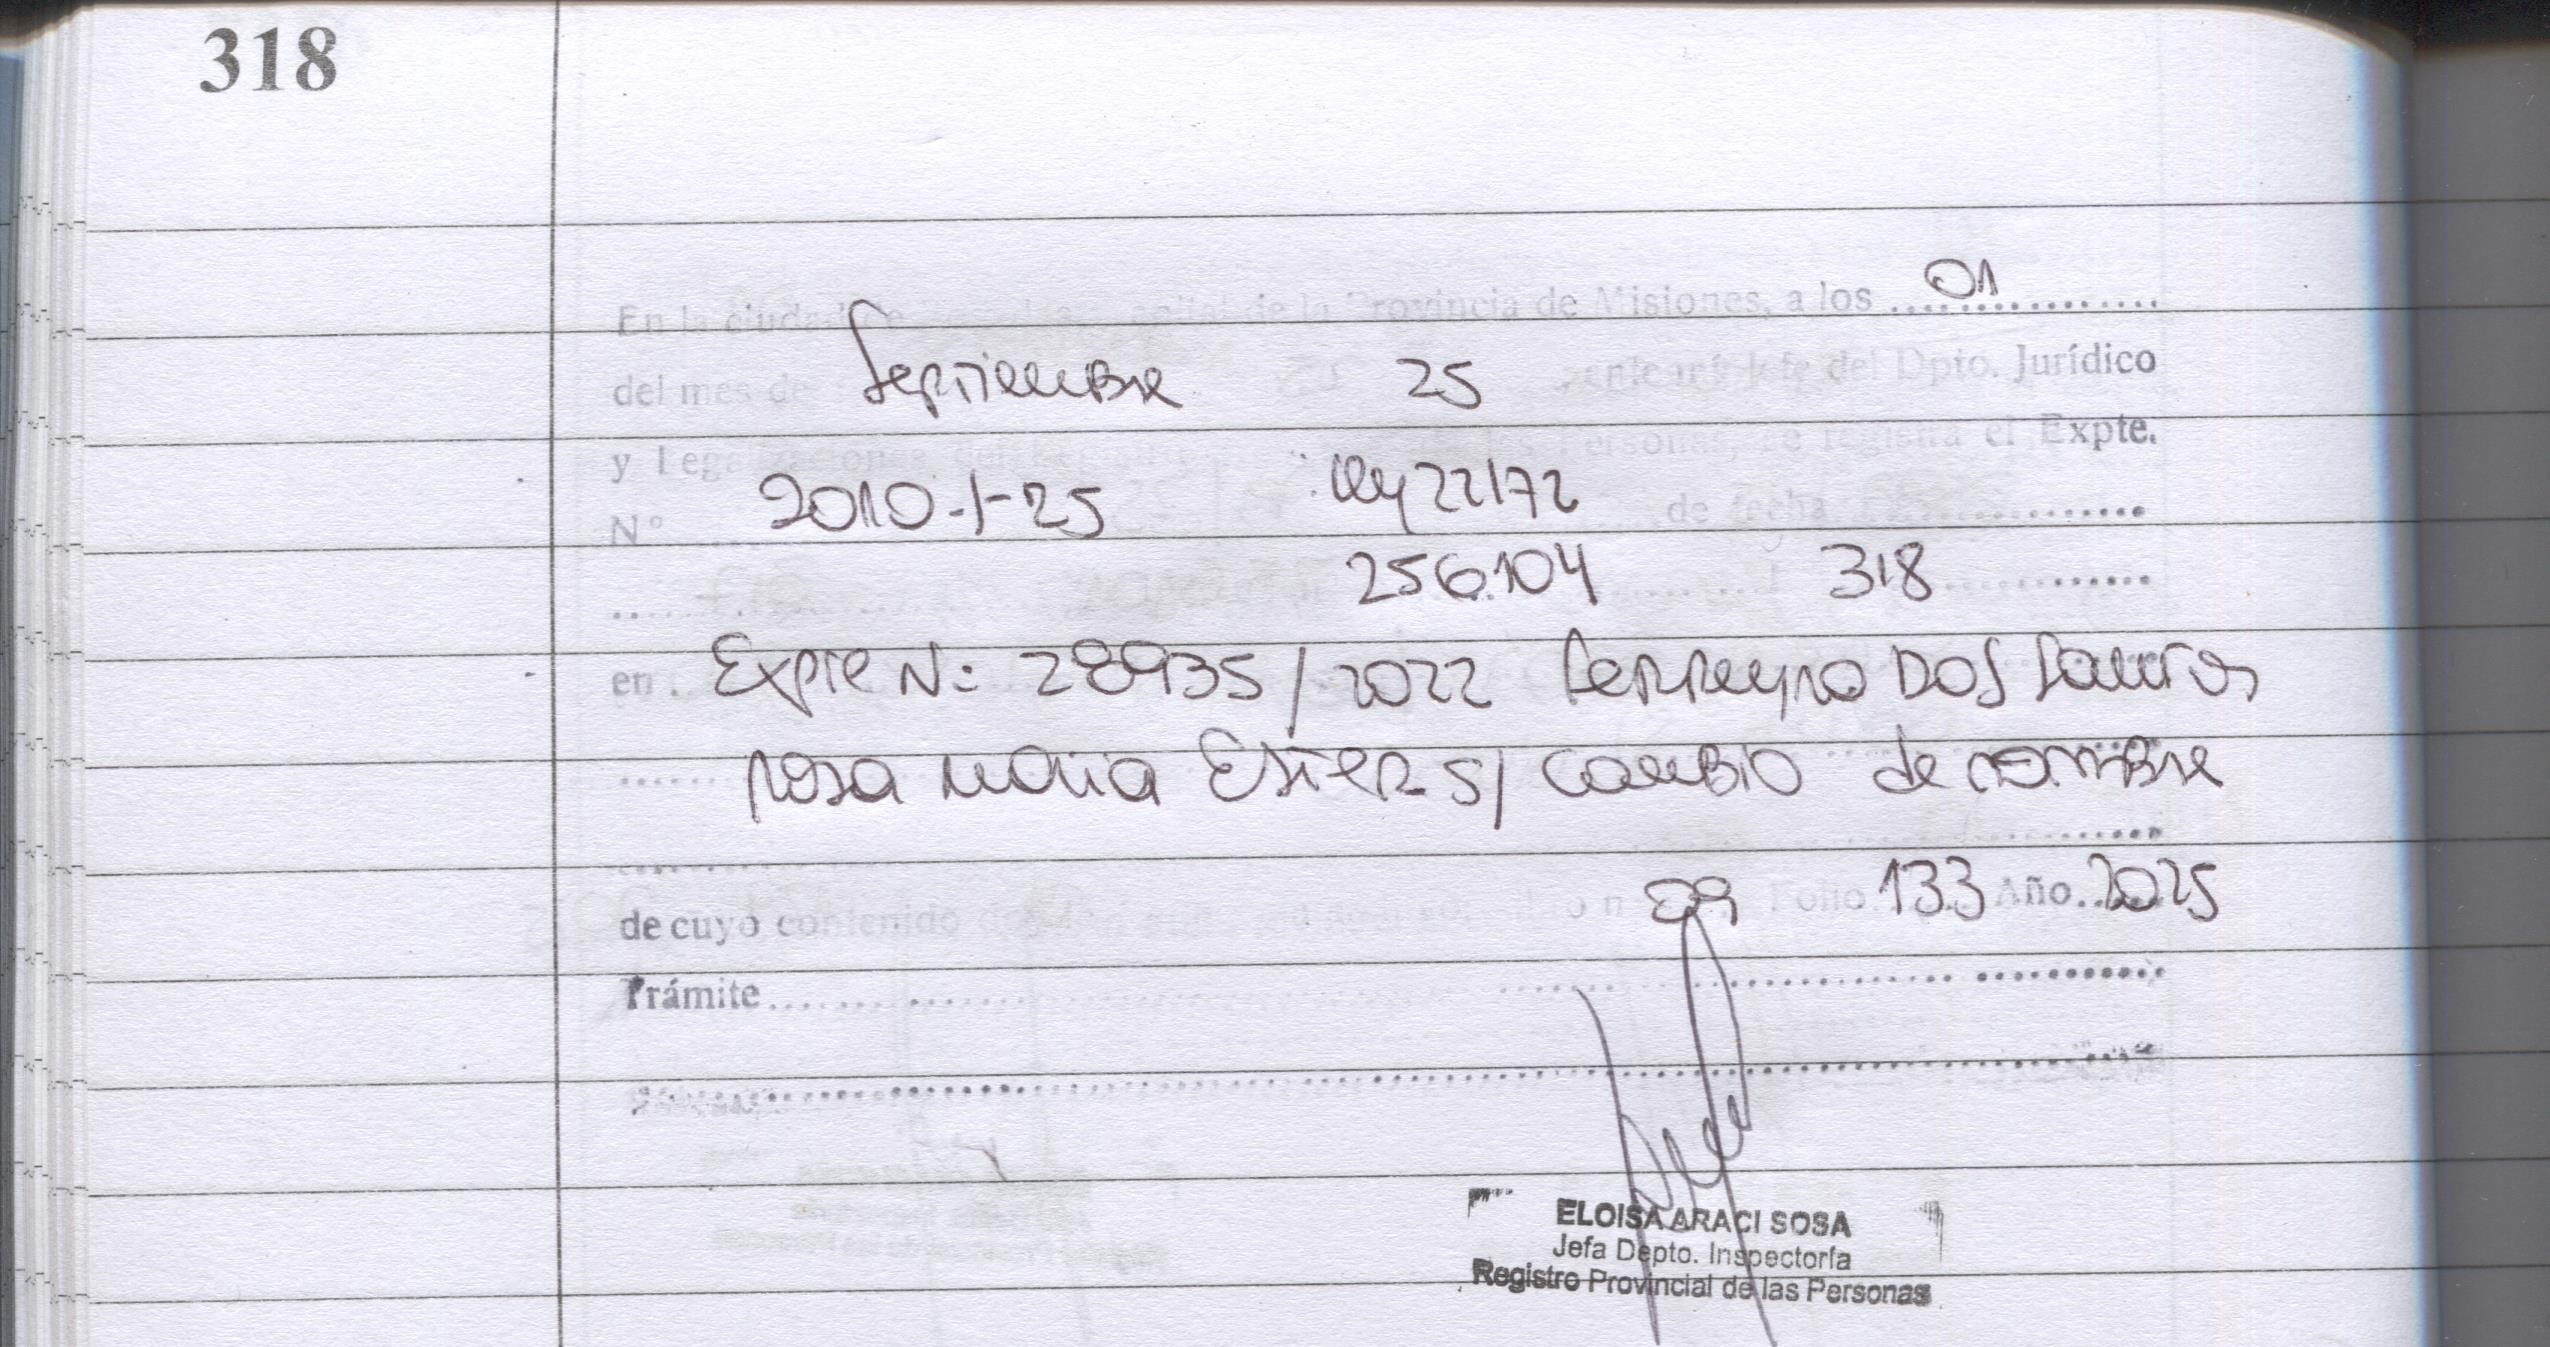 318
En la ciudad de la Provincia de Misiones, a los 01
del mes de Septiembre 25 ante mi Jefe del Dpto. Jurídico
y Legalizaciones del Personas, se registra el Expte.
N° 2010-1-25 Ley 22172 de fecha
256.104 318
en Expte N: 28935/2022 Ferreyra Dos Santos
rosa maria Ester s/ cambio de nombre
de cuyo contenido Folio 133 Año 2025
Trámite
ELOISA ARACI SOSA
Jefa Depto. Inspectoría
Registro Provincial de las Personas